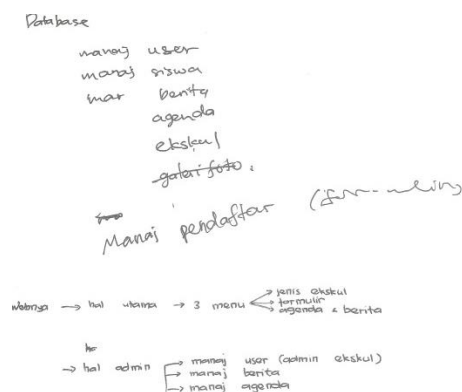 Database
manaj user
manaj siswa
mar berita
agenda
ekskul
galeri foto
Manaj pendaftar
webnya → hal utama → 3 menu → jenis ekskul
→ formulir
→ agenda & berita
→ hal admin → manaj user (admin ekskul)
→ manaj berita
→ manaj agenda